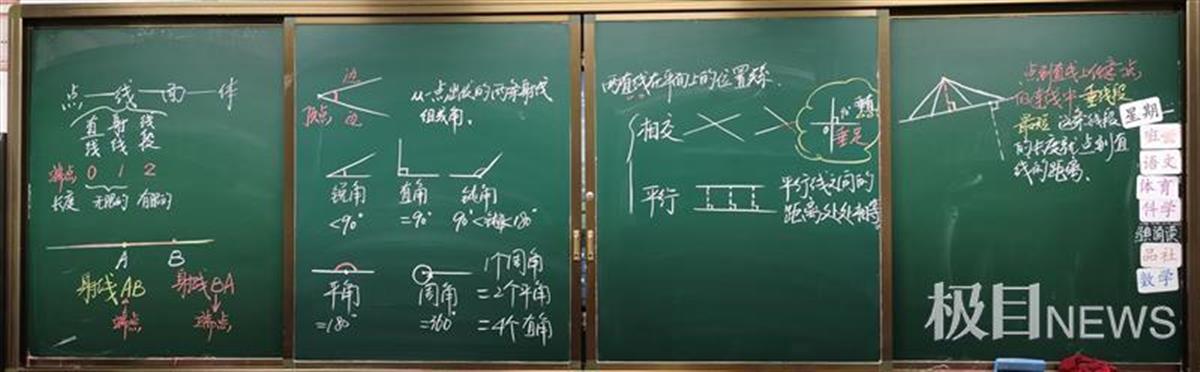 点—线—面—体
直线 射线 线段
端点 0 1 2
长度 无限的 有限的
A B
射线AB 射线BA
端点 端点
边
顶点
边
从一点出发的两条射线
组成角.
锐角 直角 钝角
<90° =90° 90°<钝角<180°
平角
=180°
周角
=360°
1个周角
=2个平角
=4个直角
两直线在平面上的位置关系.
相交
垂足
平行
平行线之间的
距离处处相等
点到直线上任意点
的连线中,垂线段
最短.这条线段
的长度就点到直
线的距离.
星期
语文
体育
科学
品社
数学
极目NEWS